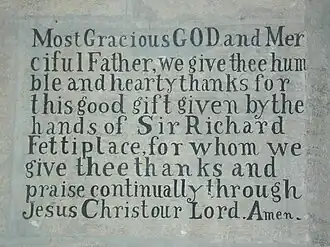 Most Gracious GOD and Mer
ciful Father, we give thee hum
ble and hearty thanks for
this good gift given by the
hands of Sir Richard
Fettiplace, for whom we
give thee thanks and
praise continually through
Jesus Christ our Lord. Amen.